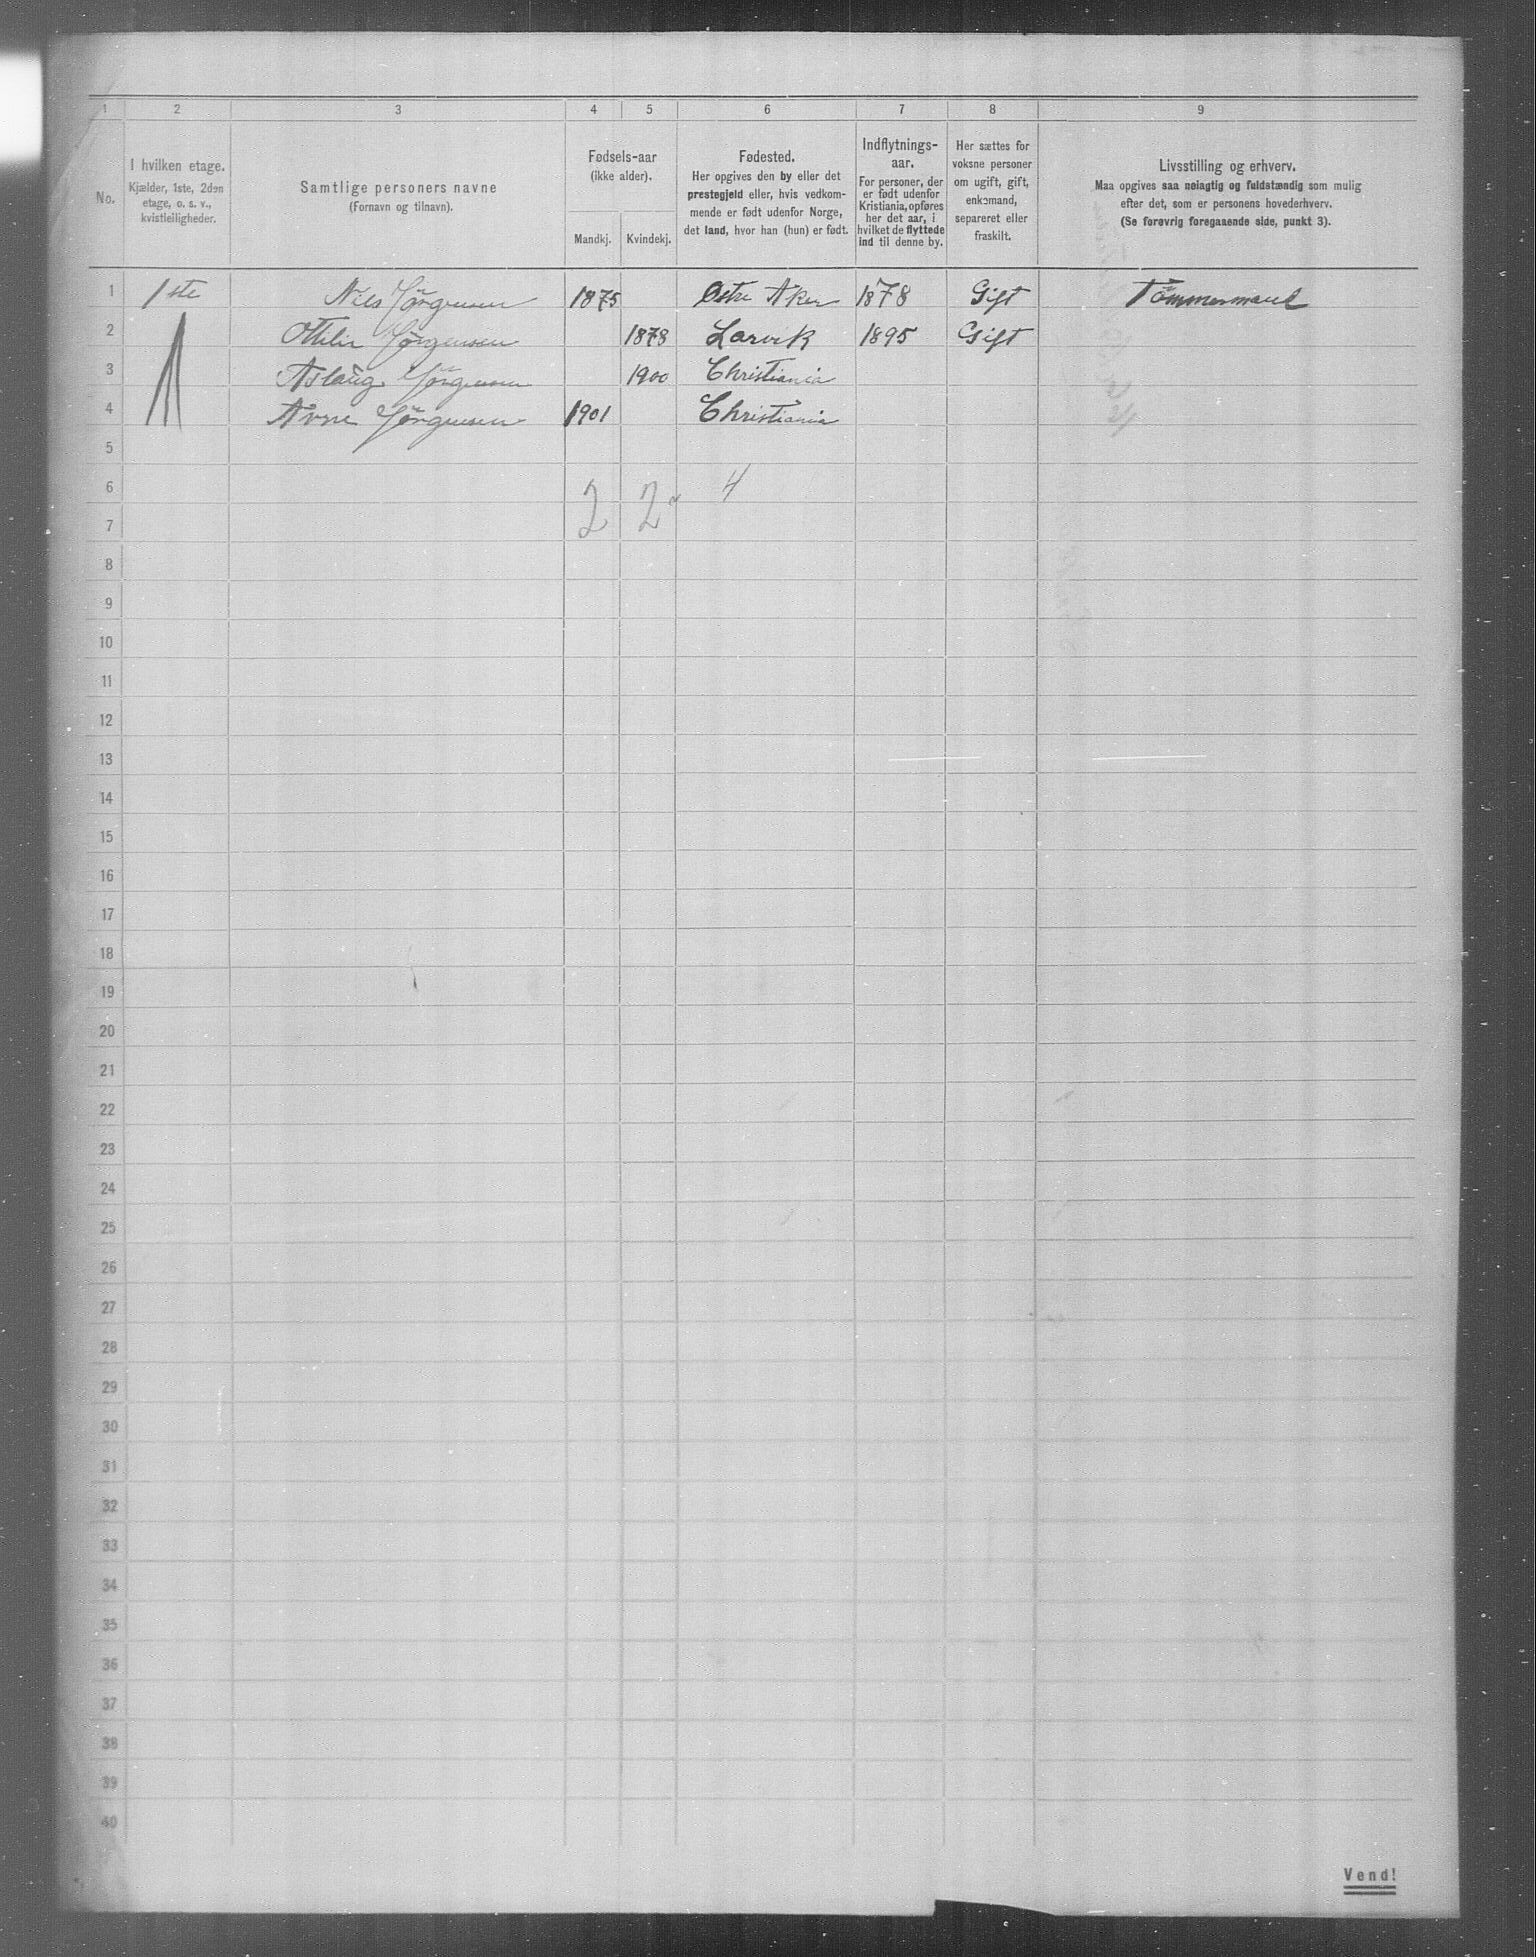 1 2 3 4 5 6 7 8 9
No.
I hvilken etage.
Kjælder, 1ste, 2den
etage, o. s. v.,
kvistleiligheder.
Samtlige personers navne
(Fornavn og tilnavn).
Fødsels-aar
(ikke alder).
Mandkj. Kvindekj.
Fødested.
Her opgives den by eller det
prestegjeld eller, hvis vedkom-
mende er født udenfor Norge,
det land, hvor han (hun) er født.
Indflytnings-
aar.
For personer, der
er født udenfor
Kristiania, opføres
her det aar, i
hvilket de flyttede
ind til denne by.
Her sættes for
voksne personer
om ugift, gift,
enkemand,
separeret eller
fraskilt.
Livsstilling og erhverv.
Maa opgives saa nøiagtig og fuldstændig som mulig
efter det, som er personens hovederhverv.
(Se forøvrig foregaaende side, punkt 3).
1 1ste Nils Jörgensen 1875 Østre Aker 1878 Gift Tömmermand
2 Ottilie Jörgensen 1878 Larvik 1895 Gift
3 Aslaug Jörgensen 1900 Christiania
4 Arne Jörgensen 1901 Christiania
5
6 2 2 4
7
8
9
10
11
12
13
14
15
16
17
18
19
20
21
22
23
24
25
26
27
28
29
30
31
32
33
34
35
36
37
38
39
40
Vend!